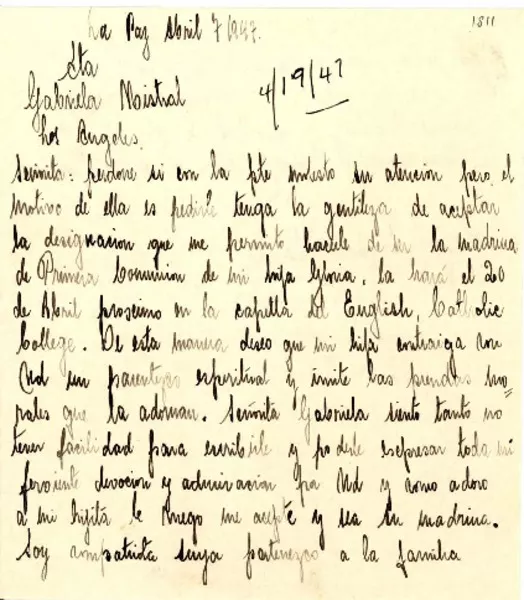 La Paz Abril 7/1947.
1811
Sta
Gabriela Mistral
4/19/47
Los Angeles.
Señorita: perdone si con la pte molesto su atencion pero el
motivo de ella es pedirle tenga la gentileza de aceptar
la designacion que me permito hacerle de ser la madrina
de Primera Comunion de mi hija Gloria, la hará el 20
de Abril proscimo en la capilla del English, Catholic
College. De esta manera deseo que mi hija contraiga con
Ud un parentezco espiritual y imite las prendas mo=
rales que la adornan. Señorita Gabriela siento tanto no
tener facilidad para escribirle y poderle espresar toda mi
ferviente devocion y admiracion por Ud y como adoro
a mi hijita le ruego me acepte y sea su madrina.
Soy compatriota suya pertenezco a la familia